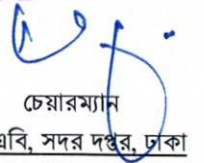 চেয়ারম্যান
এবি, সদর দপ্তর, ঢাকা